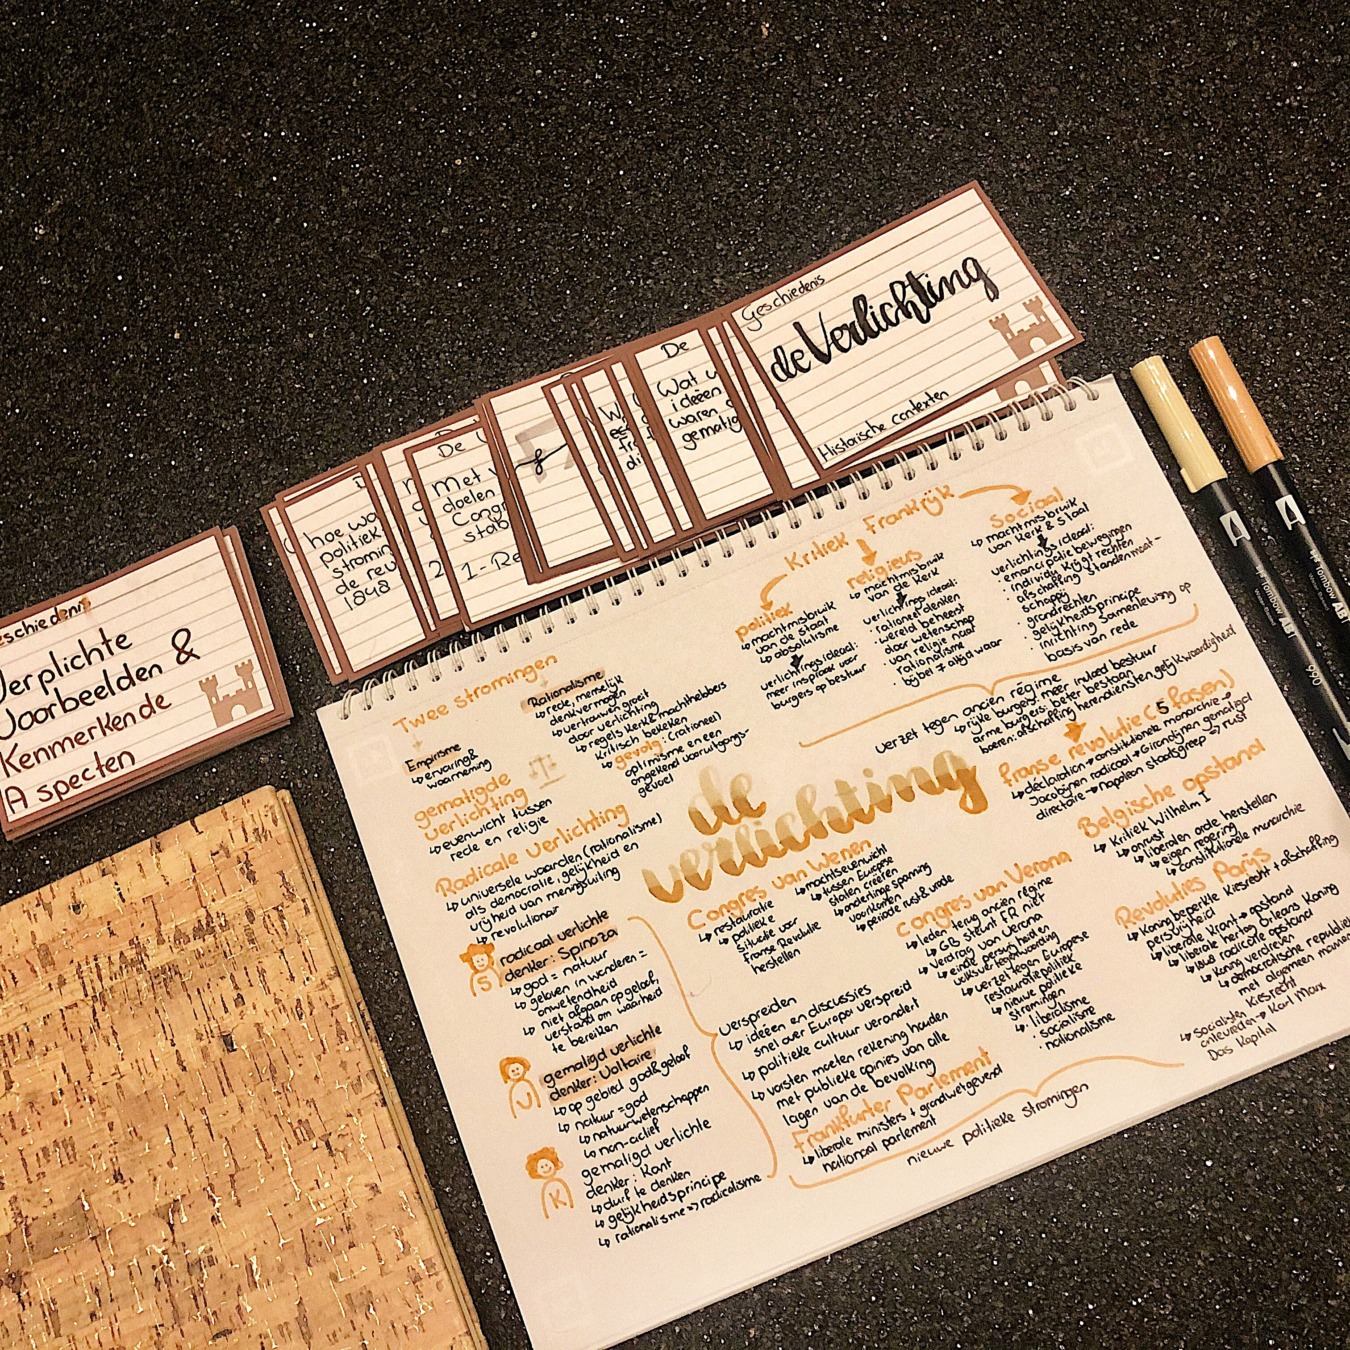 Geschiedenis
de Verlichting
Historische contexten
De
Wat
ideeën
waren
gematig
De
Met
doelen
Congr
stab
1-Re
2
hoe wo
politiek
stromin
de reu
1848
Verplichte
Voorbeelden &
Kenmerkende
Aspecten
Twee stromingen
Empirisme
↳ ervaring &
waarneming
Rationalisme
↳ rede, menselijk
denkvermogen
↳ vertrouwen groeit
door verlichting
↳ regels kerk & machthebbers
kritisch bekeken
↳ gevolg: (rationeel)
optimisme en een
ongekend vooruitgangs-
gevoel
gematigde
verlichting
↳ evenwicht tussen
rede en religie
Radicale verlichting
↳ universele waarden (rationalisme)
als democratie, gelijkheid en
vrijheid van meningsuiting
↳ revolutionair
S
radicaal verlichte
denker: Spinoza
↳ god = natuur
↳ geloven in wonderen =
onwetendheid
↳ niet afgaan op geloof,
verstand om waarheid
te bereiken
V
gematigd verlichte
denker: Voltaire
↳ op gebied god & geloof
↳ natuur = god
↳ natuurwetenschappen
↳ non-actief
K
gematigd verlichte
denker: Kant
↳ durf te denken
↳ gelijkheidsprincipe
↳ rationalisme => radicalisme
Kritiek Frankrijk
politiek
↳ machtmisbruik
van de staat
↳ absolutisme
verlichtingsideaal:
meer inspraak voor
burgers op bestuur
religieus
↳ machtmisbruik
van de kerk
verlichtingsideaal:
· rationeel denken
· wereld beheerst
door wetenschap
· van religie naar
rationalisme
· bijbel ≠ altijd waar
Sociaal
↳ machtmisbruik
van kerk & staat
verlichtingsideaal:
· emancipatiebewegingen
· individu krijgt rechten
· afschaffing standenmaat-
schappij
· grondrechten
· gelijkheidsprincipe
· inrichting samenleving op
basis van rede
verzet tegen ancien régime
↳ rijke burgerij: meer invloed bestuur
arme burgers: beter bestaan
boeren: afschaffing herendiensten, gelijkwaardigheid
de
verlichting
franse revolutie (5 fasen)
↳ déclaration → constitutionele monarchie →
Jacobijnen radicaal → Girondijnen gematigd →
directoire → Napoleon staatsgreep => rust
Belgische opstand
↳ Kritiek Wilhelm I
↳ onrust
↳ liberalen orde herstellen
↳ eigen regering
↳ constitutionele monarchie
Revoluties Parijs
↳ Koning beperkte kiesrecht + afschaffing
persvrijheid
↳ liberale krant → opstand
↳ liberale hertog Orleans Koning
↳ 1848 radicale opstand
↳ koning verdreven
↳ democratische republiek
met algemeen mannen
kiesrecht
↳ socialisten
Karl Marx
Das Kapital
Congres van Wenen
↳ restauratie
↳ politieke
situatie voor
Franse Revolutie
herstellen
↳ machtsevenwicht
↳ tussen Europese
staten creëren
↳ onderlinge spanning
voorkomen
↳ periode rust & vrede
congres van Verona
↳ leden terug ancien régime
↳ GB steunt FR niet
↳ verdrag van Verona
↳ einde persvrijheid en
volksvertegenwoordiging
↳ verzet tegen Europese
restauratiepolitiek
↳ nieuwe politieke
stromingen
· liberalisme
· socialisme
· nationalisme
Verspreiden
↳ ideeën en discussies
snel over Europa verspreid
↳ politieke cultuur verandert
↳ vorsten moeten rekening houden
met publieke opinies van alle
lagen van de bevolking
Frankfurter Parlement
↳ liberale ministers + grondwetgevend
nationaal parlement
nieuwe politieke stromingen
Tombow
990